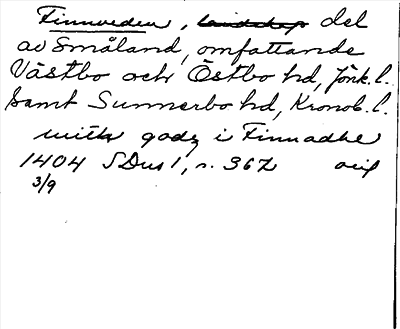 Finnveden, landskap del
av Småland, omfattande
Västbo och Östbo hd, Jönk. l.
samt Sunnerbo hd, Kronob. l.
mith godz i Finnadhe
1404 SDns 1, s. 367 orig
3/9